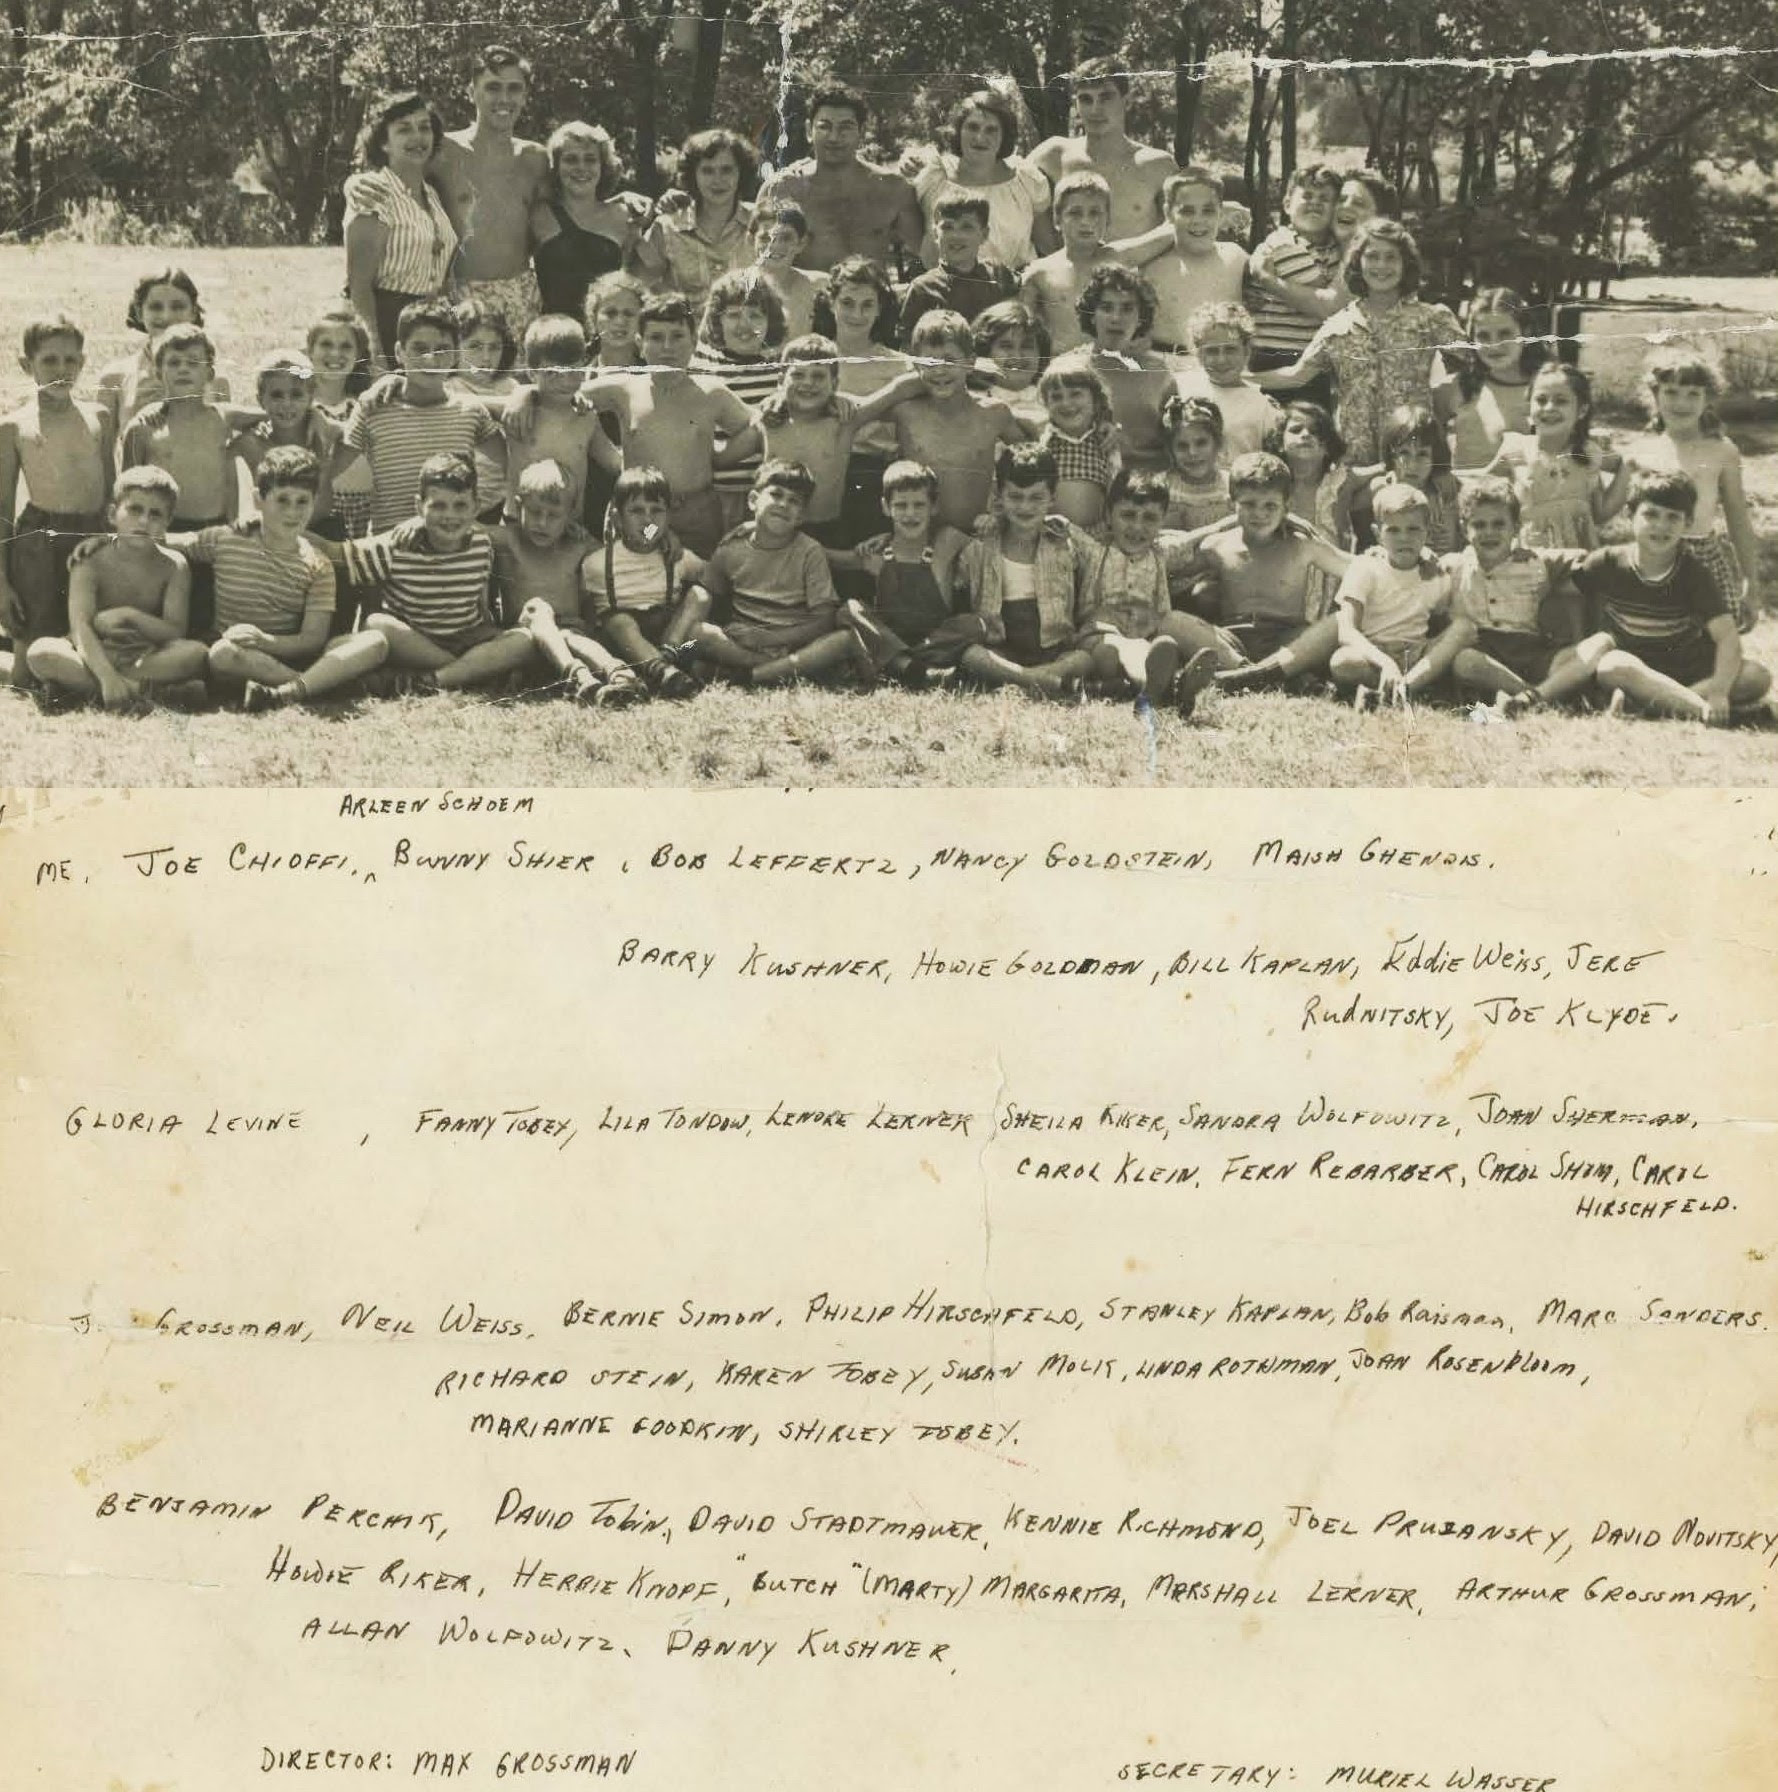 ARLEEN SCHOEM
ME. JOE CHIOFFI. ^ BUNNY SHIER, BOB LEFFERTZ, NANCY GOLDSTEIN, MAISH GHENDIS.
BARRY KUSHNER, HOWIE GOLDMAN, BILL KAPLAN, Eddie Weiss, JERE
RUdNITSKY, JOE KLYDE.
GLORIA LEVINE, FANNY TOBEY, LILA TONDOW, LENORE LERNER SHEILA RIKER, SANDRA WOLFOWITZ, JOAN SHERMAN,
CAROL KLEIN, FERN REBARBER, CAROL SHUM, CAROL
HIRSCHFELD.
GROSSMAN, NEIL WEISS, BERNIE SIMON, PHILIP HIRSCHFELD, STANLEY KAPLAN, Bob Raisman, MARC SANDERS.
RICHARD STEIN, KAREN TOBEY, SUSAN MOLIK, LINDA ROTHMAN, JOAN ROSENbloom,
MARIANNE GOODKIN, SHIRLEY TOBEY.
BENJAMIN PERCHIK, DAVID Tobin, DAVID STADTMAUER, KENNIE RICHMOND, JOEL PRUZANSKY, DAVID NOVITSKY,
HOWIE RIKER, HERBIE KNOPF, "BUTCH" (MARTY) MARGARITA, MARSHALL LERNER, ARTHUR GROSSMAN,
ALLAN WOLFOWITZ, DANNY KUSHNER,
DIRECTOR: MAX GROSSMAN
SECRETARY: MURIEL WASSER